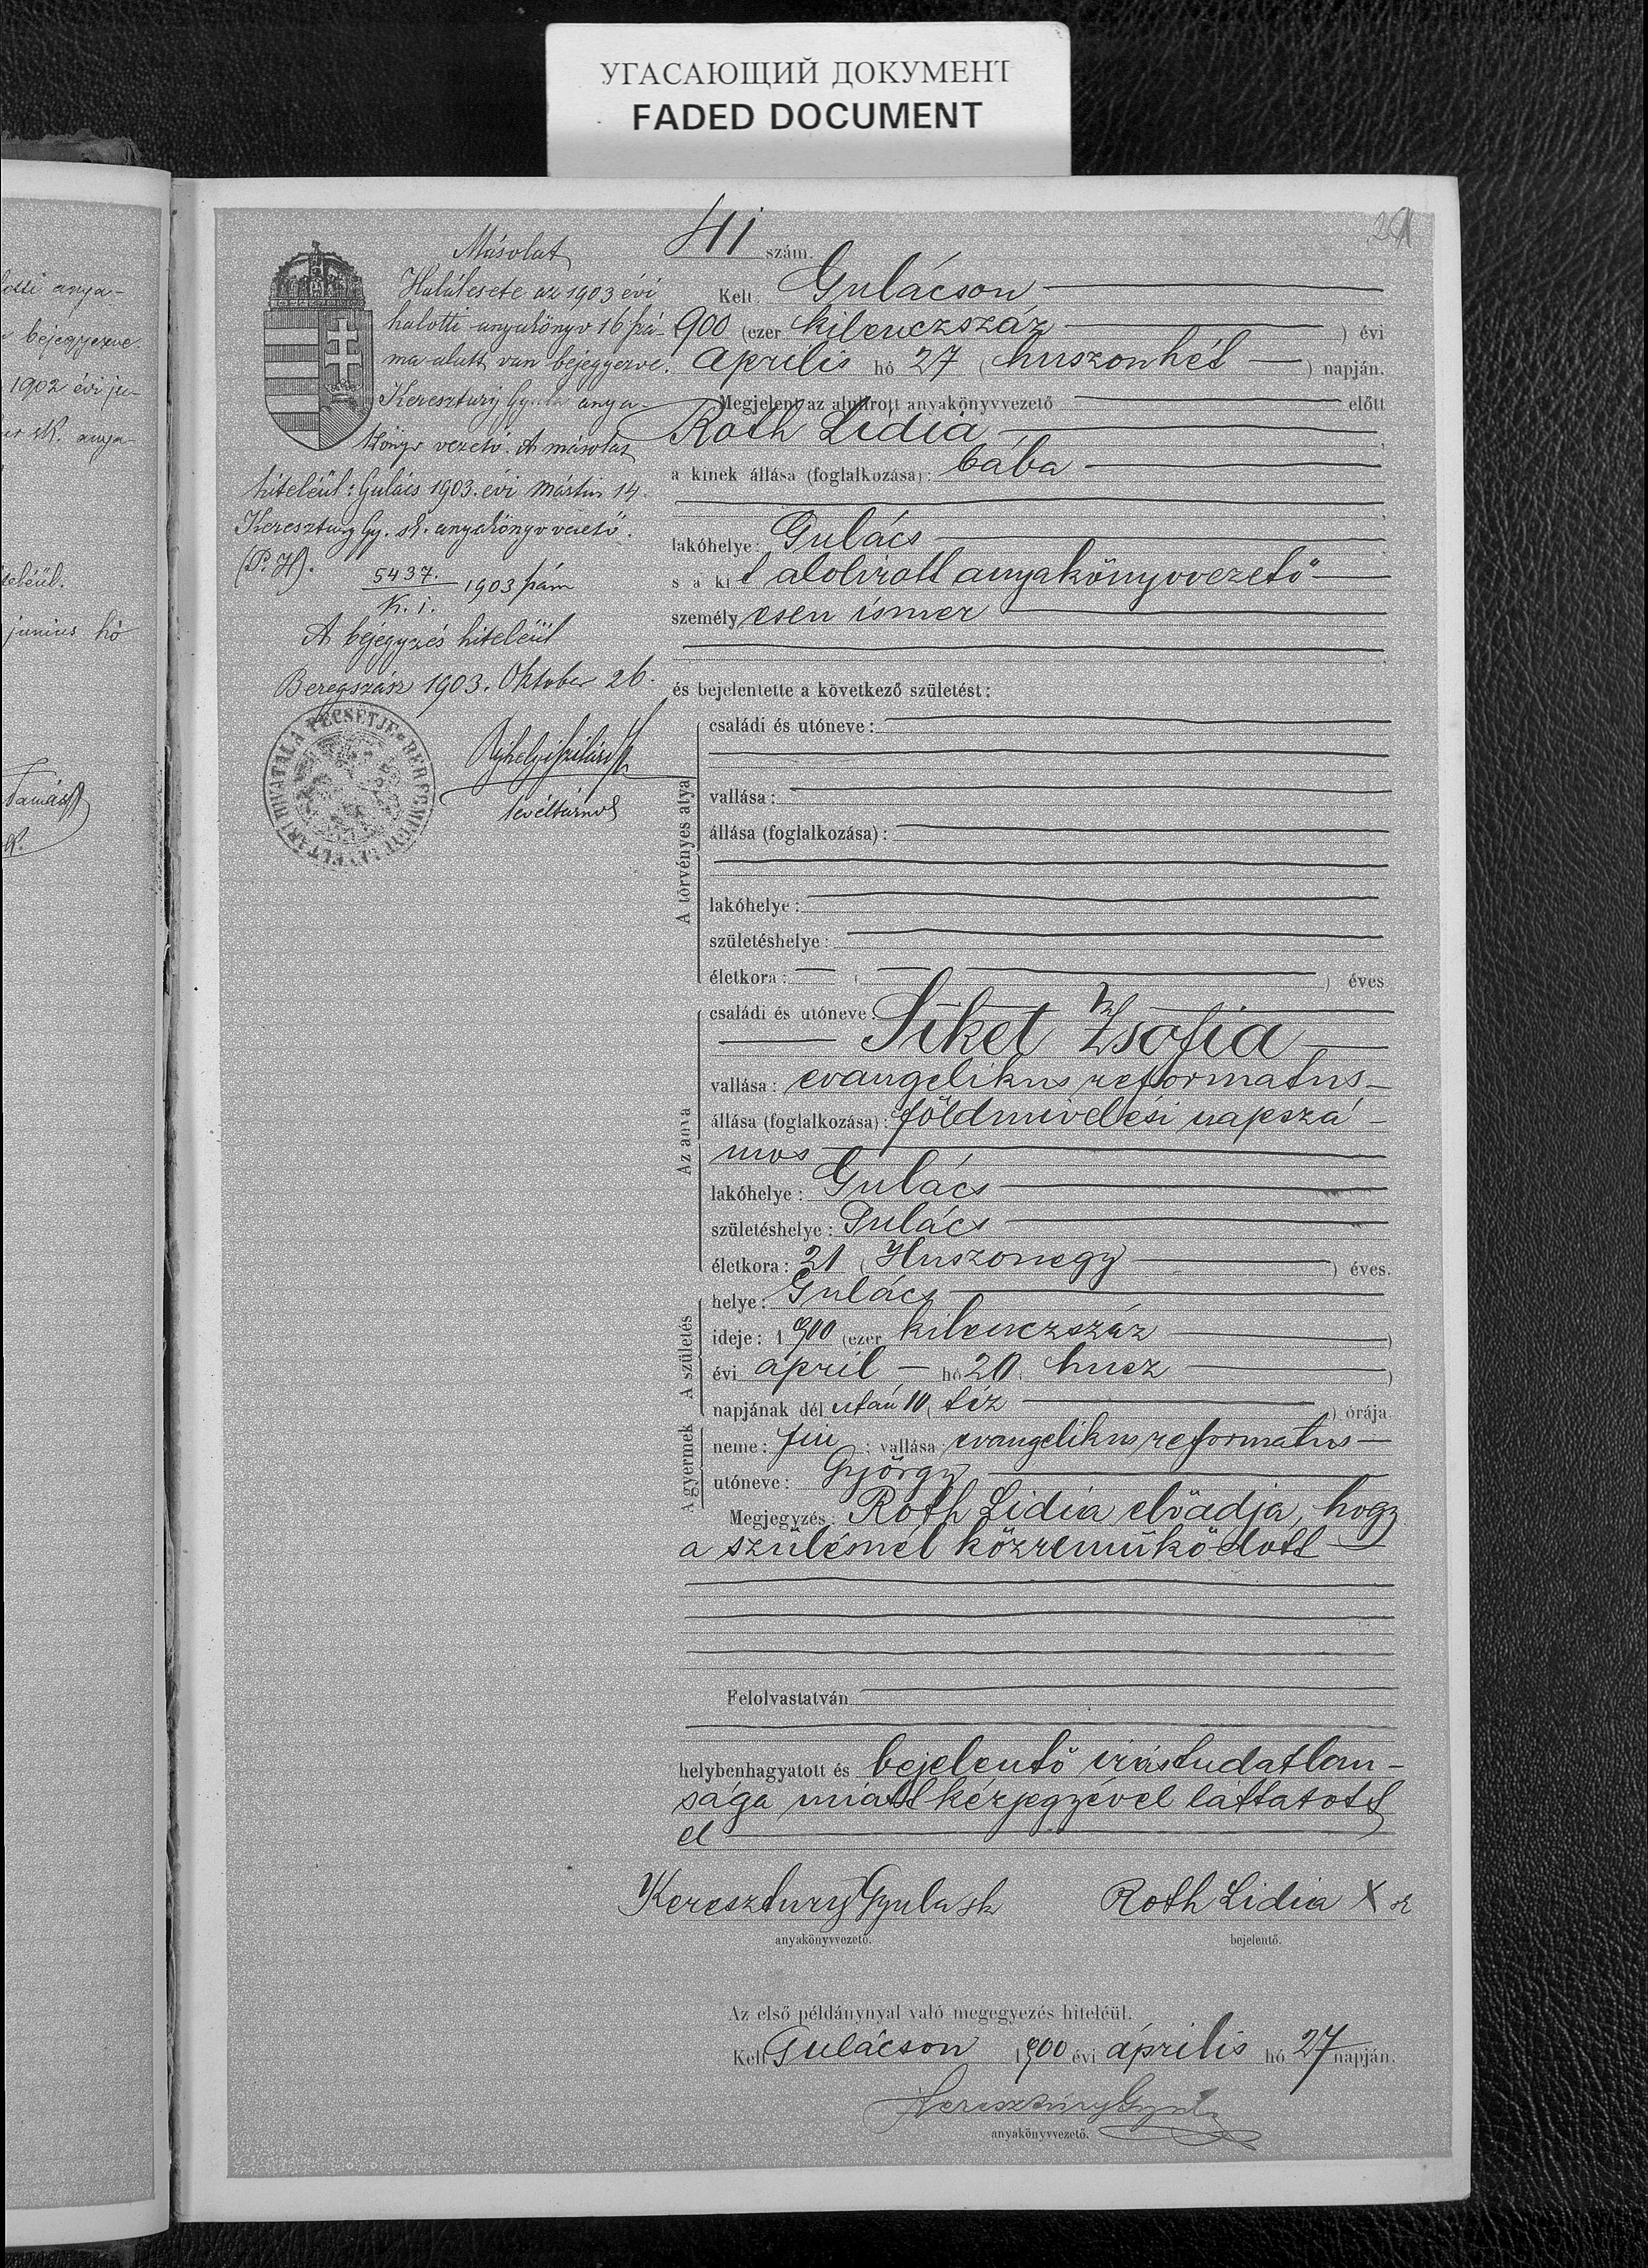 УГАСАЮЩИЙ ДОКУМЕНТ
FADED DOCUMENT
anya-
bejegyezve.
1902 évi ju-
sk. anya-
hiteléül.
junius hó
Tamás
Másolat
Halálesete az 1903 évi
halotti anyakönyv 16 szá-
ma alatt van bejegyezve.
Keresztury Gyula anya-
könyv vezető. A másolat
hiteléül: Gulács 1903. évi Mártius 14.
Keresztury Gy. sk. anyakönyvvezető.
(P. H).
5437.
K. i. 1903 szám
A bejegyzés hiteléül
Beregszász 1903. Oktober 26.
levéltárnok
41 szám.
Kelt: Gulácson
900 (ezer kilenczszáz ) évi
április hó 27 (huszonhét ) napján.
Megjelent az alulírott anyakönyvvezető előtt
Roth Lidia
a kinek állása (foglalkozása): bába
lakóhelye: Gulács
s a kit alolirott anyakönyvvezető
személyesen ismer
és bejelentette a következő születést:
A törvényes atya
családi és utóneve:
vallása:
állása (foglalkozása):
lakóhelye:
születéshelye:
életkora: ( ) éves
Az anya
családi és utóneve:
Siket Zsofia
vallása: evangelikus reformatus
állása (foglalkozása): földmivelési napszá-
mos
lakóhelye: Gulács
születéshelye: Gulács
életkora: 21 (Huszonegy ) éves.
A születés
helye: Gulács
ideje: 1900 (ezer kilenczszáz )
évi april hó 20. husz )
napjának dél után 10 (tíz ) órája.
A gyermek
neme: fiu ; vallása: evangelikus reformatus
utóneve: György
Megjegyzés: Roth Lidia előadja, hogy
a szülésnél közreműködött
Felolvastatván
helybenhagyatott és bejelentő irástudatlan-
sága miatt kézjegyével láttatott
el
Keresztury Gyula sk Roth Lidia X
anyakönyvvezető. bejelentő.
Az első példánynyal való megegyezés hiteléül.
Kelt Gulácson 1900 évi április hó 27 napján.
Keresztury Gyula
anyakönyvvezető.